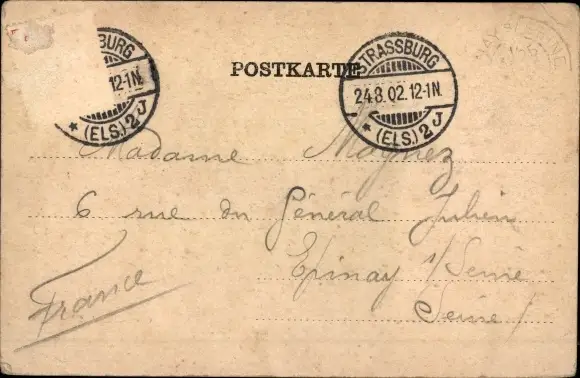 BURG
12-1N.
* (ELS.) 2 J
POSTKARTE
STRASSBURG
24.8.02.12-1N.
* (ELS.) 2 J
Madame
6 rue du Général Julien
Epinay s/Seine
Seine /
France